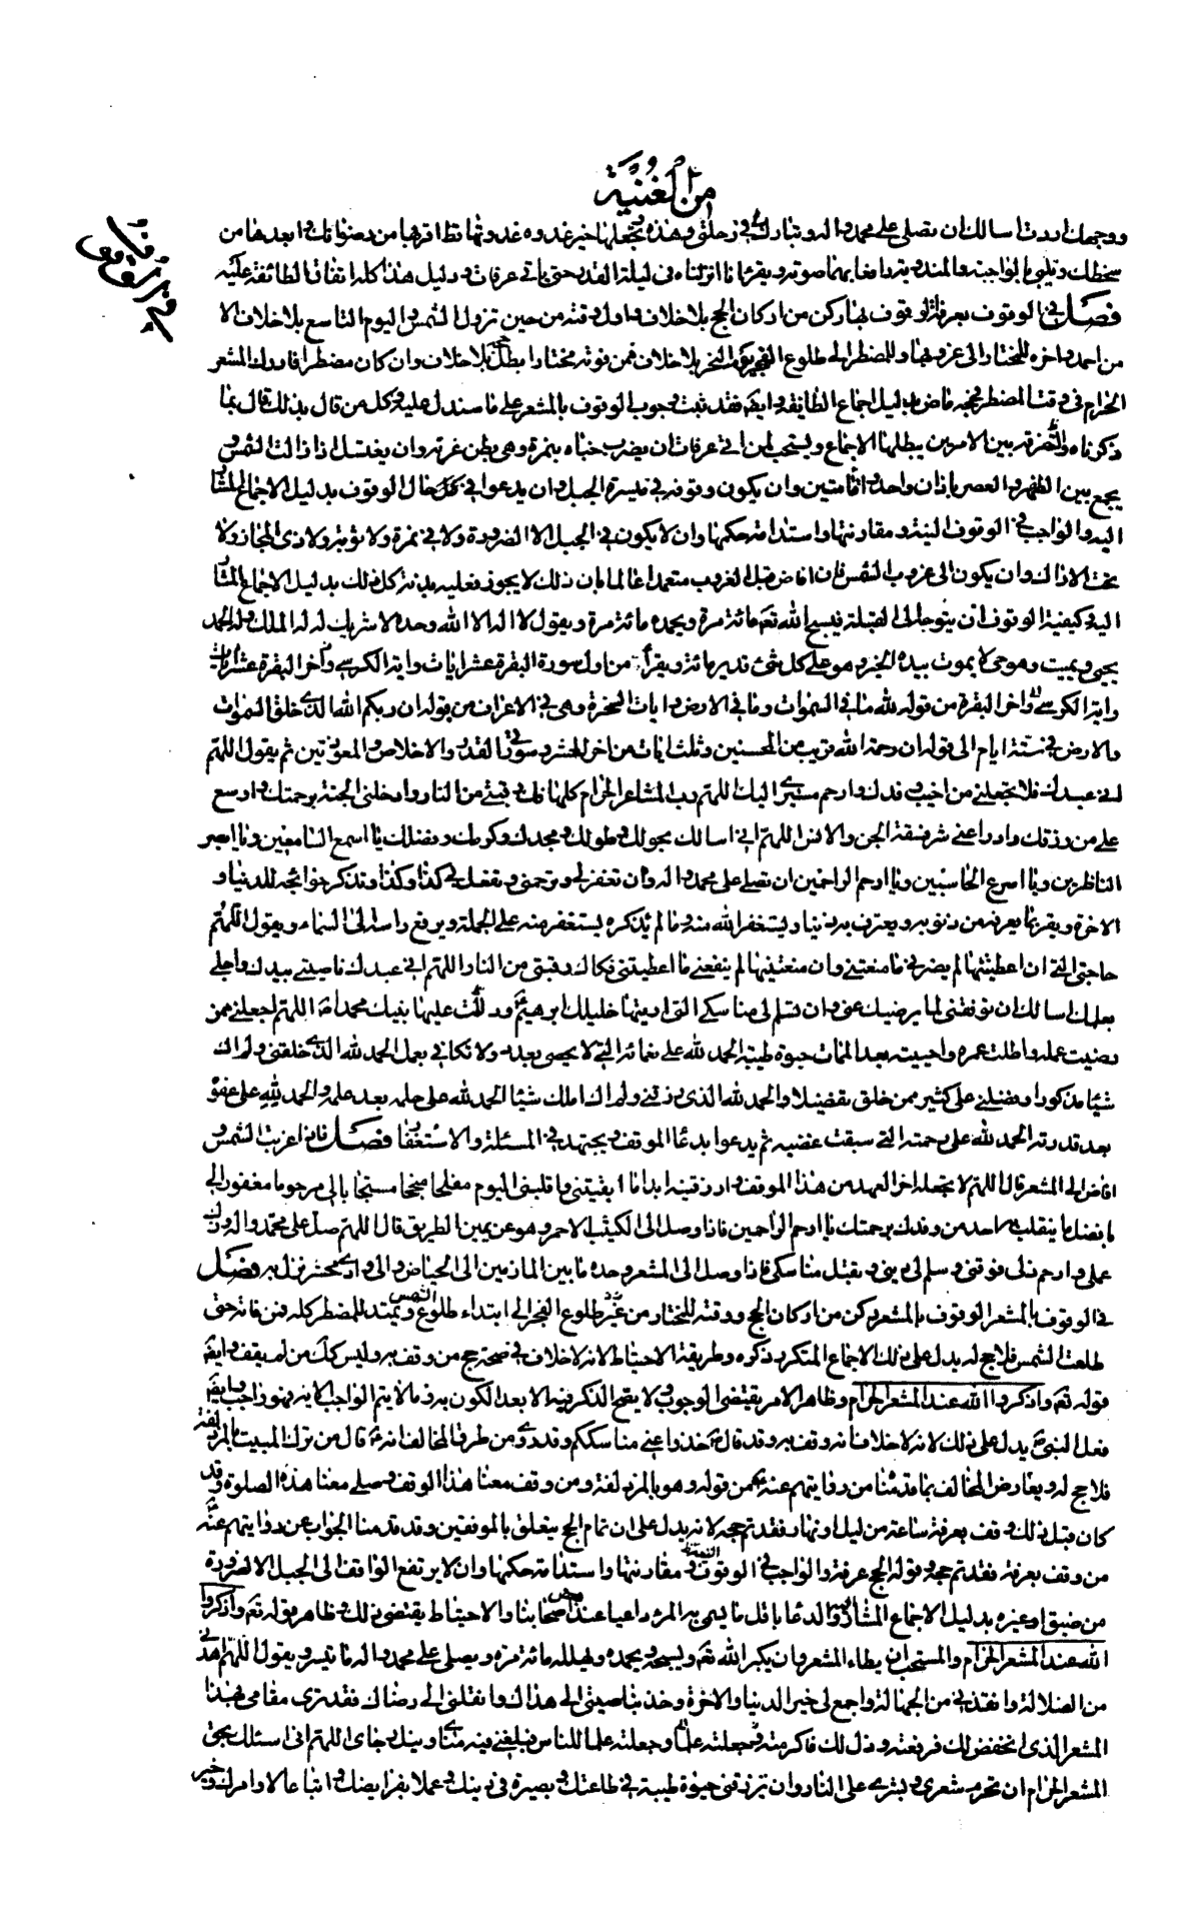 من الغنية
في الوقوف
ووجهك اردت اسالك ان تصلي على محمد واله وتبارك لي في رحلتي وهذه وتجعلها خير غدوة غدوتها قط اقربها من رضوانك وابعدها من
سخطك ويلبي بالواجبة والمندوبة رافعا بهما صوته ويقرء انا انزلناه في ليلة القدر حتى ياتي عرفات ودليل هذا كله اتفاق الطائفة عليه
فصل في الوقوف بعرفة الوقوف بها ركن من اركان الحج بلا خلاف واول وقته من حين تزول الشمس في اليوم التاسع بلا خلاف الا
من احمد واخره للمختار الى غروبها وللمضطر الى طلوع الفجر يوم النحر بلا خلاف فمن فوته مختارا بطل حجه بلا خلاف وان كان مضطرا فادرك المشعر
الحرام في وقت المضطر فحجه ماض بدليل اجماع الطايفة وايضا فقد ثبت وجوب الوقوف بالمشعر على ما سندل عليه وكل من قال بذلك قال بما
ذكرناه والتفرقة بين الامرين يبطلها الاجماع ويستحب لمن اتى عرفات ان يضرب خباه بنمرة وهي بطن عرنة وان يغتسل اذا زالت الشمس و
يجمع بين الظهر والعصر باذان واحد واقامتين وان يكون وقوفه في ميسرة الجبل وان يدعو في كل حال الوقوف بدليل الاجماع المشار
اليه والواجب في الوقوف النية ومقارنتها واستدامة حكمها وان لا يكون في الجبل الا لضرورة ولا في نمرة ولا ثوية ولا ذي المجاز ولا
تحت الاراك وان يكون الى غروب الشمس فان افاض قبل الغروب متعمدا عالما بان ذلك لا يجوز فعليه بدنة كل ذلك بدليل الاجماع المشار
اليه وكيفية الوقوف ان يتوجه الى القبلة فيسبح الله تعالى مائة مرة ويحمده مائة مرة ويقول لا اله الا الله وحده لا شريك له له الملك وله الحمد
يحيي ويميت وهو حي لا يموت بيده الخير وهو على كل شئ قدير مائة ويقرأ من اول سورة البقرة عشر ايات واية الكرسي واخر البقرة عشر ايات
واية الكرسي واخر البقرة من قوله لله ما في السموات وما في الارض وايات السخرة وهي في الاعراف من قوله ان ربكم الله الذي خلق السموات
والارض في ستة ايام الى قوله ان رحمة الله قريب من المحسنين وثلث ايات من اخر الحشر وسورتي القدر والاخلاص والمعوذتين ثم يقول اللهم
اني عبدك فلا تجعلني من اخيب وفدك وارحم مسيري اليك اللهم رب المشاعر الحرام كلها فك رقبتي من النار وادخلني الجنة برحمتك واوسع
علي من رزقك وادرا عني شر فسقة الجن والانس اللهم اني اسالك بحولك وطولك ومجدك وكرمك وفضلك يا اسمع السامعين ويا ابصر
الناظرين ويا اسرع الحاسبين ويا ارحم الراحمين ان تصلي على محمد واله وان تغفر لي وترحمني وتفعل بي كذا وكذا وتذكر حوائجه للدنيا و
الاخرة ويقر بما يعرفه من ذنوبه ويعترف به ذنبا ذنبا ويستغفر الله منه وما لم يذكره يستغفر منه على الجملة ويرفع راسه الى السماء ويقول اللهم
حاجتي التي ان اعطيتنيها لم يضرني ما منعتني وان منعتنيها لم ينفعني ما اعطيتني فكاك رقبتي من النار اللهم اني عبدك ناصيتي بيدك واجلي
بعلمك اسالك ان توفقني لما يرضيك عني وان تسلم لي مناسكي التي اريتها خليلك ابرهيم ودللت عليها نبيك محمدا اللهم اجعلني ممن
رضيت عمله واطلت عمره واحييته بعد الممات حيوة طيبة الحمد لله على نعمائه التي لا يحصى بعدد ولا تكافي بعمل الحمد لله الذي خلقني ولم اك
شيئا مذكورا وفضلني على كثير من خلق تفضيلا والحمد لله الذي رزقني ولم اك املك شيئا الحمد لله على حلمه بعد علمه والحمد لله على عفوه
بعد قدرته الحمد لله على رحمته التي سبقت غضبه ثم يدعوا بدعاء الموقف ويجتهد في المسئلة والاستغفار فصل فاذا غربت الشمس و
افاض الى المشعر قال اللهم لا تجعله اخر العهد من هذا الموقف وارزقنيه ابدا ما ابقيتني واقلبني اليوم مفلحا منجحا مستجابا لي مرحوما مغفورا لي
بافضل ما ينقلب به احد من وفدك برحمتك يا ارحم الراحمين فاذا وصل الى الكثيب الاحمر وهو عن يمين الطريق قال اللهم صل على محمد واله وزك
عملي وارحم ذلي فوقني وسلم لي ديني وتقبل مناسكي فاذا وصل الى المشعر وحده ما بين المازمين الى الحياض والى وادي محسر نزل به فصل
في الوقوف بالمشعر الوقوف بالمشعر ركن من اركان الحج ووقته للمختار من طلوع الفجر الى ابتداء طلوع الشمس ويمتد للمضطر كله فمن فاته حتى
طلعت الشمس فلا حج له يدل على ذلك الاجماع المتكرر ذكره وطريقة الاحتياط لانه لا خلاف في صحة حج من وقف به وليس كذلك من لم يقف وايضا
قوله تعالى واذكروا الله عند المشعر الحرام وظاهر الامر يقتضي الوجوب ولا يقع الذكر فيه الا بعد الكون به وما لا يتم الواجب الا به فهو واجب وايضا
فعل النبي يدل على ذلك لانه لا خلاف انه وقف به وقد قال خذوا عني مناسككم وقد روي من طرق المخالف انه قال من ترك المبيت بالمزدلفة
فلا حج له ويعارض المخالف بما قدمنا من روايتهم عنه من قوله وهو بالمزدلفة ومن وقف معنا هذا الوقف وصلى معنا هذه الصلوة وقد
كان قبل ذلك وقف بعرفة ساعة من ليل او نهار فقد تم حجه لانه يدل على ان تمام الحج يتعلق بالموقفين وقد قدمنا الجواب عن روايتهم عنه
من وقف بعرفة فقد تم حجه وقوله الحج عرفة والواجب في الوقوف النية ومقارنتها واستدامة حكمها وان لا يرتفع الواقف الى الجبل الا لضرورة
من ضيق او غيره بدليل الاجماع المشار اليه والدعا باقل ما يسمى به المرء داعيا عند بعض اصحابنا والاحتياط يقتضي ذلك وظاهر قوله تعالى واذكروا
الله عند المشعر الحرام والمستحب ان يطاء المشعر وان يكبر الله تعالى ويسبحه ويحمده ويهلله مائة مرة ويصلي على محمد واله ما تيسر ويقول اللهم اهدني
من الضلالة وانقذني من الجهالة واجمع لي خير الدنيا والاخرة وخذ بناصيتي الى هذاك وانقلني الى رضاك فقد ترى مقامي بهذا
المشعر الذي انخفض لك فرفعته وذل لك فاكرمته وجعلته علما للناس فبلغني فيه مناي ونيل رجاي اللهم اني اسئلك بحق
المشعر الحرام ان تحرم شعري وبشري على النار وان ترزقني حيوة طيبة في طاعتك وبصيرة في دينك وعملا بفرايضك واتباعا لاوامرك وخير